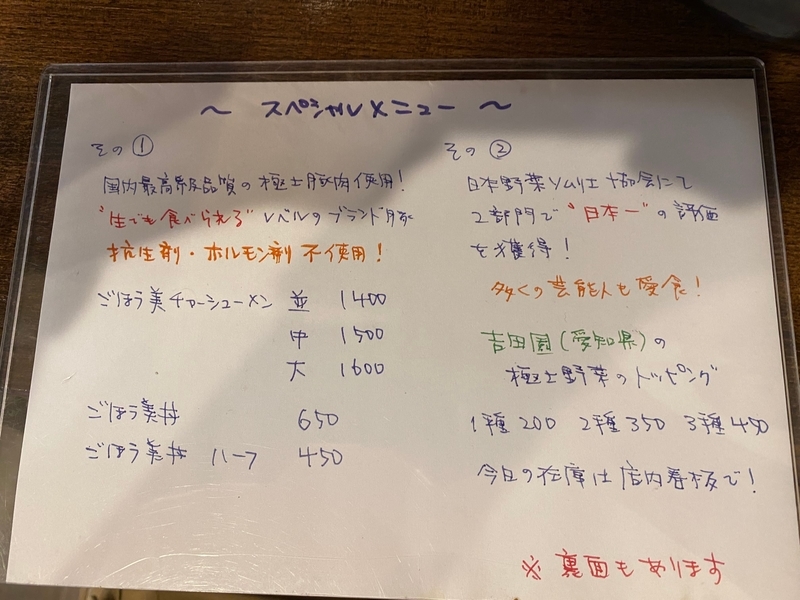 ～ スペシャルメニュー ～
その①
国内最高級品質の極上豚肉使用！
"生でも食べられる"レベルのブランド豚
抗生剤・ホルモン剤 不使用！
ごほう美チャーシューメン 並 1400
中 1500
大 1600
ごほう美丼 650
ごほう美丼 ハーフ 450
その②
日本野菜ソムリエ協会にて
2部門で"日本一"の評価
を獲得！
多くの芸能人も愛食！
吉田園(愛知県)の
極上野菜のトッピング
1種 200 2種 350 3種 450
今日の在庫は店内看板で！
※ 裏面もあります